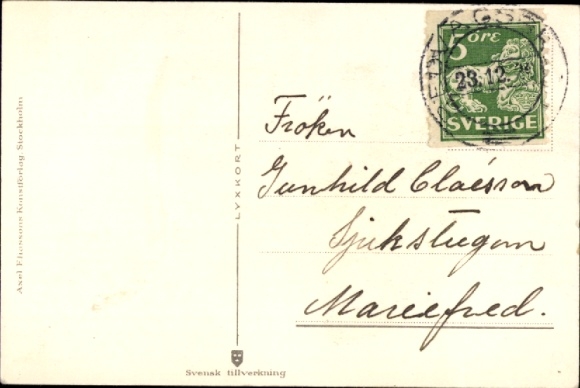 5 ÖRE
23.12.
SVERIGE
Fröken
Gunhild Claésson
Sjukstugan
Mariefred.
LYXKORT
Axel Eliassons Konstförlag Stockholm
Svensk tillverkning